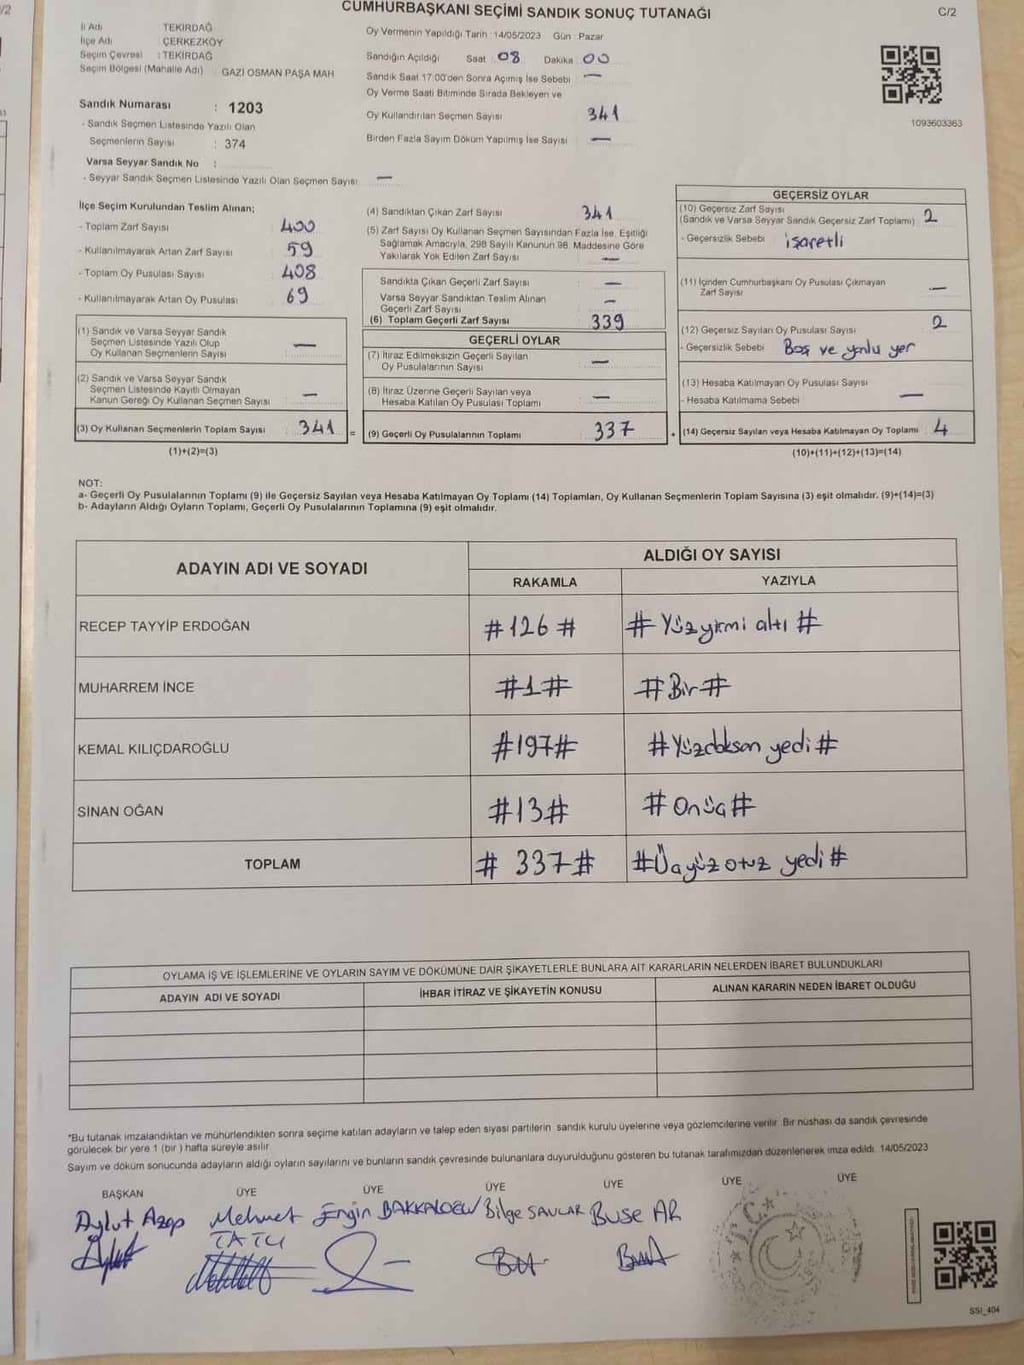 CUMHURBAŞKANI SEÇİMİ SANDIK SONUÇ TUTANAĞI
C/2
İl Adı TEKİRDAĞ
İlçe Adı ÇERKEZKÖY
Seçim Çevresi : TEKİRDAĞ
Seçim Bölgesi (Mahalle Adı) : GAZİ OSMAN PAŞA MAH
Sandık Numarası : 1203
- Sandık Seçmen Listesinde Yazılı Olan
Seçmenlerin Sayısı : 374
Varsa Seyyar Sandık No :
- Seyyar Sandık Seçmen Listesinde Yazılı Olan Seçmen Sayısı —
Oy Vermenin Yapıldığı Tarih : 14/05/2023 Gün : Pazar
Sandığın Açıldığı Saat : 08 Dakika : 00
Sandık Saat 17:00'den Sonra Açımış İse Sebebi —
Oy Verme Saati Bitiminde Sırada Bekleyen ve
Oy Kullandırılan Seçmen Sayısı 341
Birden Fazla Sayım Döküm Yapılmış İse Sayısı —
1093603363
İlçe Seçim Kurulundan Teslim Alınan;
- Toplam Zarf Sayısı 400
- Kullanılmayarak Artan Zarf Sayısı 59
- Toplam Oy Pusulası Sayısı 408
- Kullanılmayarak Artan Oy Pusulası 69
(1) Sandık ve Varsa Seyyar Sandık
Seçmen Listesinde Yazılı Olup
Oy Kullanan Seçmenlerin Sayısı —
(2) Sandık ve Varsa Seyyar Sandık
Seçmen Listesinde Kayıtlı Olmayan
Kanun Gereği Oy Kullanan Seçmen Sayısı —
(3) Oy Kullanan Seçmenlerin Toplam Sayısı 341 =
(1)+(2)=(3)
(4) Sandıktan Çıkan Zarf Sayısı 341
(5) Zarf Sayısı Oy Kullanan Seçmen Sayısından Fazla İse, Eşitliği
Sağlamak Amacıyla, 298 Sayılı Kanunun 98. Maddesine Göre
Yakılarak Yok Edilen Zarf Sayısı —
Sandıkta Çıkan Geçerli Zarf Sayısı —
Varsa Seyyar Sandıktan Teslim Alınan
Geçerli Zarf Sayısı —
(6) Toplam Geçerli Zarf Sayısı 339
GEÇERLİ OYLAR
(7) İtiraz Edilmeksizin Geçerli Sayılan
Oy Pusulalarının Sayısı —
(8) İtiraz Üzerine Geçerli Sayılan veya
Hesaba Katılan Oy Pusulası Toplamı —
(9) Geçerli Oy Pusulalarının Toplamı 337 +
GEÇERSİZ OYLAR
(10) Geçersiz Zarf Sayısı
(Sandık ve Varsa Seyyar Sandık Geçersiz Zarf Toplamı) 2
- Geçersizlik Sebebi işaretli
(11) İçinden Cumhurbaşkanı Oy Pusulası Çıkmayan
Zarf Sayısı —
(12) Geçersiz Sayılan Oy Pusulası Sayısı 2
- Geçersizlik Sebebi Boş ve yanlış yer
(13) Hesaba Katılmayan Oy Pusulası Sayısı
- Hesaba Katılmama Sebebi —
(14) Geçersiz Sayılan veya Hesaba Katılmayan Oy Toplamı 4
(10)+(11)+(12)+(13)=(14)
NOT:
a- Geçerli Oy Pusulalarının Toplamı (9) ile Geçersiz Sayılan veya Hesaba Katılmayan Oy Toplamı (14) Toplamları, Oy Kullanan Seçmenlerin Toplam Sayısına (3) eşit olmalıdır. (9)+(14)=(3)
b- Adayların Aldığı Oyların Toplamı, Geçerli Oy Pusulalarının Toplamına (9) eşit olmalıdır.
ADAYIN ADI VE SOYADI
ALDIĞI OY SAYISI
RAKAMLA YAZIYLA
RECEP TAYYİP ERDOĞAN #126# #Yüzyirmi altı#
MUHARREM İNCE #1# #Bir#
KEMAL KILIÇDAROĞLU #197# #Yüzdoksan yedi#
SİNAN OĞAN #13# #Onüç#
TOPLAM #337# #Üçyüz otuz yedi#
OYLAMA İŞ VE İŞLEMLERİNE VE OYLARIN SAYIM VE DÖKÜMÜNE DAİR ŞİKAYETLERLE BUNLARA AİT KARARLARIN NELERDEN İBARET BULUNDUKLARI
ADAYIN ADI VE SOYADI İHBAR İTİRAZ VE ŞİKAYETİN KONUSU ALINAN KARARIN NEDEN İBARET OLDUĞU
*Bu tutanak imzalandıktan ve mühürlendikten sonra seçime katılan adayların ve talep eden siyasi partilerin sandık kurulu üyelerine veya gözlemcilerine verilir. Bir nüshası da sandık çevresinde
görülecek bir yere 1 (bir) hafta süreyle asılır.
Sayım ve döküm sonucunda adayların aldığı oyların sayılarını ve bunların sandık çevresinde bulunanlara duyurulduğunu gösteren bu tutanak tarafımızdan düzenlenerek imza edildi. 14/05/2023
BAŞKAN ÜYE ÜYE ÜYE ÜYE ÜYE ÜYE
Aylut Azap Mehmet TATU Engin BAKKALOĞLU Bilge SAVLAR BUSE AR
T.C.
SSI_404